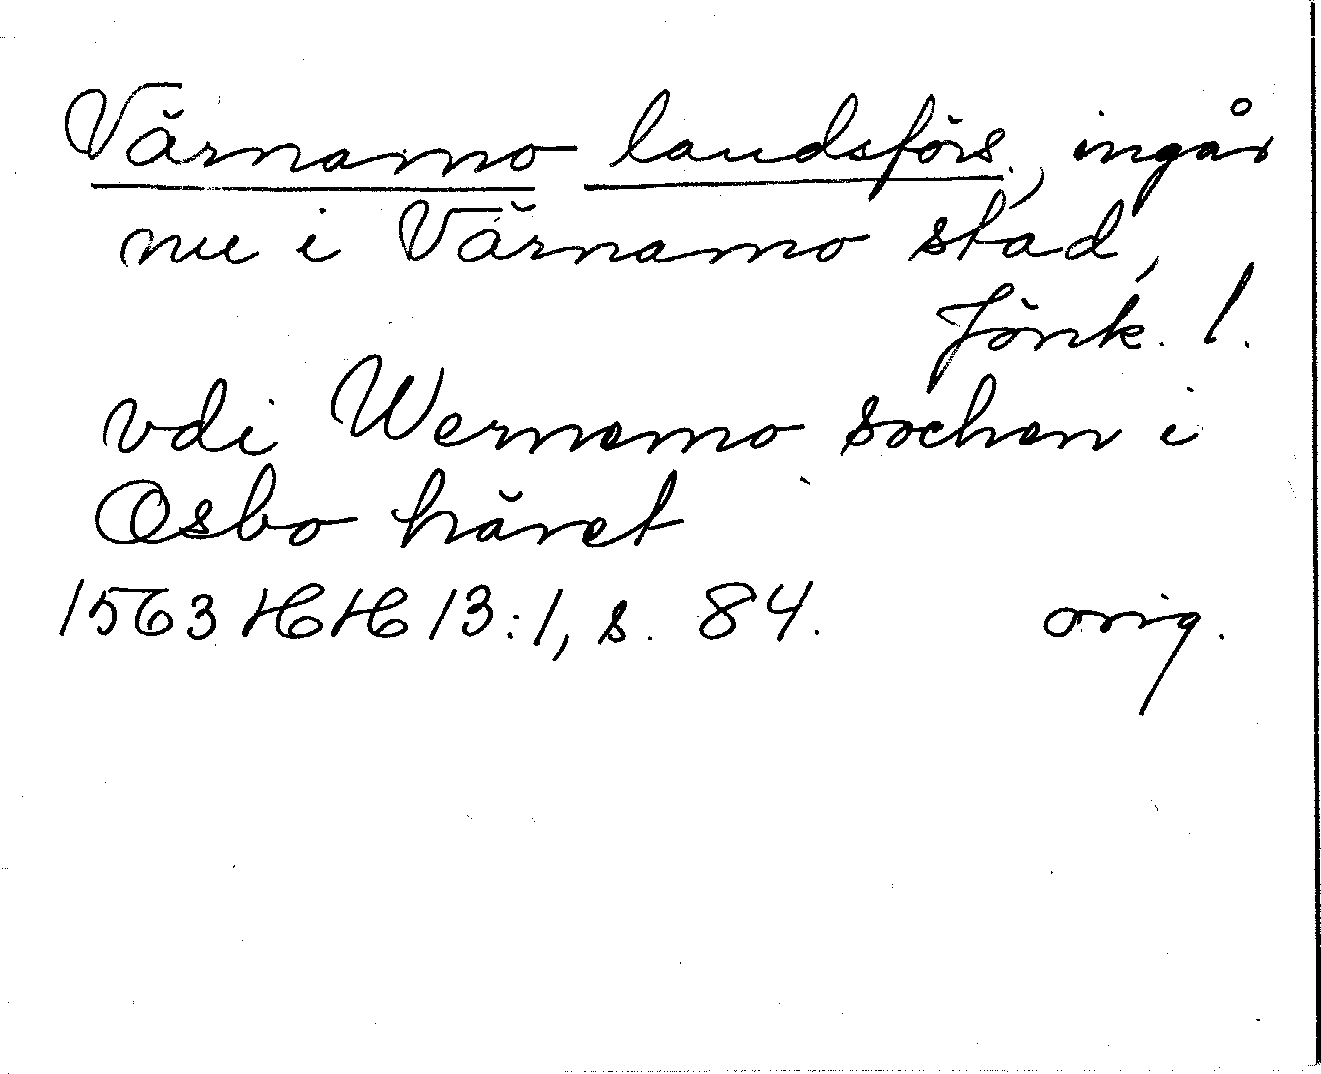 Värnamo landsförs., ingår
nu i Värnamo stad,
Jönk. l.
vdi Wernamo sochen i
Osbo häret
1563 HH 13:1, s. 84. orig.